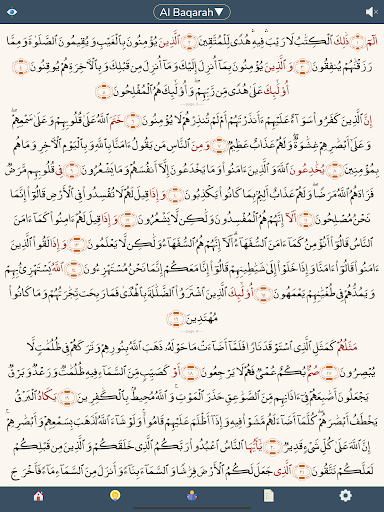 Al Baqarah▼
الٓمٓ ١ ذَٰلِكَ ٱلْكِتَٰبُ لَا رَيْبَ ۛ فِيهِ ۛ هُدًى لِّلْمُتَّقِينَ ٢ ٱلَّذِينَ يُؤْمِنُونَ بِٱلْغَيْبِ وَيُقِيمُونَ ٱلصَّلَوٰةَ وَمِمَّا
رَزَقْنَٰهُمْ يُنفِقُونَ ٣ وَٱلَّذِينَ يُؤْمِنُونَ بِمَآ أُنزِلَ إِلَيْكَ وَمَآ أُنزِلَ مِن قَبْلِكَ وَبِٱلْءَاخِرَةِ هُمْ يُوقِنُونَ ٤
أُو۟لَٰٓئِكَ عَلَىٰ هُدًى مِّن رَّبِّهِمْ ۖ وَأُو۟لَٰٓئِكَ هُمُ ٱلْمُفْلِحُونَ ٥
إِنَّ ٱلَّذِينَ كَفَرُوا۟ سَوَآءٌ عَلَيْهِمْ ءَأَنذَرْتَهُمْ أَمْ لَمْ تُنذِرْهُمْ لَا يُؤْمِنُونَ ٦ خَتَمَ ٱللَّهُ عَلَىٰ قُلُوبِهِمْ وَعَلَىٰ سَمْعِهِمْ ۖ
وَعَلَىٰٓ أَبْصَٰرِهِمْ غِشَٰوَةٌ ۖ وَلَهُمْ عَذَابٌ عَظِيمٌ ٧ وَمِنَ ٱلنَّاسِ مَن يَقُولُ ءَامَنَّا بِٱللَّهِ وَبِٱلْيَوْمِ ٱلْءَاخِرِ وَمَا هُم
بِمُؤْمِنِينَ ٨ يُخَٰدِعُونَ ٱللَّهَ وَٱلَّذِينَ ءَامَنُوا۟ وَمَا يَخْدَعُونَ إِلَّآ أَنفُسَهُمْ وَمَا يَشْعُرُونَ ٩ فِى قُلُوبِهِم مَّرَضٌ
فَزَادَهُمُ ٱللَّهُ مَرَضًا ۖ وَلَهُمْ عَذَابٌ أَلِيمٌۢ بِمَا كَانُوا۟ يَكْذِبُونَ ١٠ وَإِذَا قِيلَ لَهُمْ لَا تُفْسِدُوا۟ فِى ٱلْأَرْضِ قَالُوٓا۟ إِنَّمَا
نَحْنُ مُصْلِحُونَ ١١ أَلَآ إِنَّهُمْ هُمُ ٱلْمُفْسِدُونَ وَلَٰكِن لَّا يَشْعُرُونَ ١٢ وَإِذَا قِيلَ لَهُمْ ءَامِنُوا۟ كَمَآ ءَامَنَ
ٱلنَّاسُ قَالُوٓا۟ أَنُؤْمِنُ كَمَآ ءَامَنَ ٱلسُّفَهَآءُ ۗ أَلَآ إِنَّهُمْ هُمُ ٱلسُّفَهَآءُ وَلَٰكِن لَّا يَعْلَمُونَ ١٣ وَإِذَا لَقُوا۟ ٱلَّذِينَ
ءَامَنُوا۟ قَالُوٓا۟ ءَامَنَّا وَإِذَا خَلَوْا۟ إِلَىٰ شَيَٰطِينِهِمْ قَالُوٓا۟ إِنَّا مَعَكُمْ إِنَّمَا نَحْنُ مُسْتَهْزِءُونَ ١٤ ٱللَّهُ يَسْتَهْزِئُ بِهِمْ
وَيَمُدُّهُمْ فِى طُغْيَٰنِهِمْ يَعْمَهُونَ ١٥ أُو۟لَٰٓئِكَ ٱلَّذِينَ ٱشْتَرَوُا۟ ٱلضَّلَٰلَةَ بِٱلْهُدَىٰ فَمَا رَبِحَت تِّجَٰرَتُهُمْ وَمَا كَانُوا۟
مُهْتَدِينَ ١٦
مَثَلُهُمْ كَمَثَلِ ٱلَّذِى ٱسْتَوْقَدَ نَارًا فَلَمَّآ أَضَآءَتْ مَا حَوْلَهُۥ ذَهَبَ ٱللَّهُ بِنُورِهِمْ وَتَرَكَهُمْ فِى ظُلُمَٰتٍ لَّا
يُبْصِرُونَ ١٧ صُمٌّۢ بُكْمٌ عُمْىٌ فَهُمْ لَا يَرْجِعُونَ ١٨ أَوْ كَصَيِّبٍ مِّنَ ٱلسَّمَآءِ فِيهِ ظُلُمَٰتٌ وَرَعْدٌ وَبَرْقٌ
يَجْعَلُونَ أَصَٰبِعَهُمْ فِىٓ ءَاذَانِهِم مِّنَ ٱلصَّوَٰعِقِ حَذَرَ ٱلْمَوْتِ ۚ وَٱللَّهُ مُحِيطٌۢ بِٱلْكَٰفِرِينَ ١٩ يَكَادُ ٱلْبَرْقُ
يَخْطَفُ أَبْصَٰرَهُمْ ۖ كُلَّمَآ أَضَآءَ لَهُم مَّشَوْا۟ فِيهِ وَإِذَآ أَظْلَمَ عَلَيْهِمْ قَامُوا۟ ۚ وَلَوْ شَآءَ ٱللَّهُ لَذَهَبَ بِسَمْعِهِمْ وَأَبْصَٰرِهِمْ ۚ
إِنَّ ٱللَّهَ عَلَىٰ كُلِّ شَىْءٍ قَدِيرٌ ٢٠ يَٰٓأَيُّهَا ٱلنَّاسُ ٱعْبُدُوا۟ رَبَّكُمُ ٱلَّذِى خَلَقَكُمْ وَٱلَّذِينَ مِن قَبْلِكُمْ
لَعَلَّكُمْ تَتَّقُونَ ٢١ ٱلَّذِى جَعَلَ لَكُمُ ٱلْأَرْضَ فِرَٰشًا وَٱلسَّمَآءَ بِنَآءً وَأَنزَلَ مِنَ ٱلسَّمَآءِ مَآءً فَأَخْرَجَ